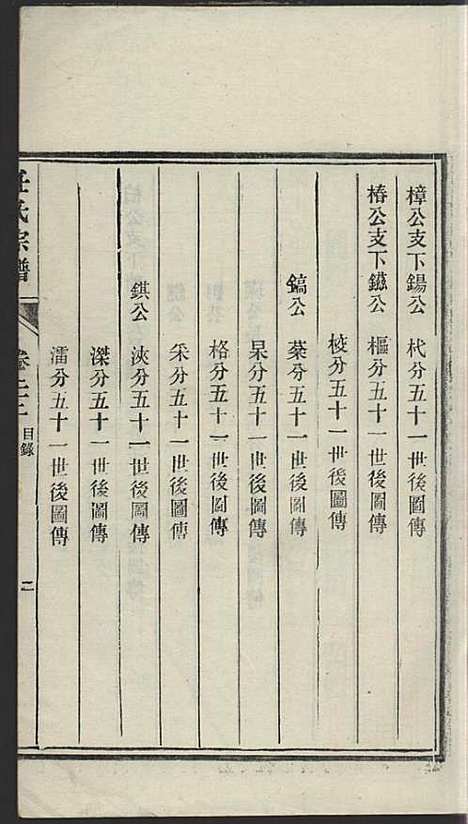 樟公支下鍚公 杙分五十一世後圖傳
椿公支下鎡公 樞分五十一世後圖傳
棱分五十一世後圖傳
鎬公 棻分五十一世後圖傳
杲分五十一世後圖傳
格分五十一世後圖傳
采分五十一世後圖傳
鉷公 浹分五十一世後圖傳
濚分五十一世後圖傳
澑分五十一世後圖傳
任氏宗譜 卷二十二 目錄 二